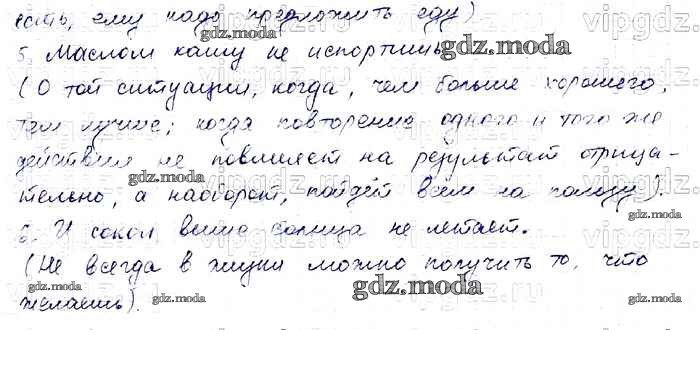 есть, ему надо предложить еду)
5. Маслом кашу не испортишь
(О той ситуации, когда, чем больше хорошего,
тем лучше; когда повторение одного и того же
действия не повлияет на результат отрица-
тельно, а наоборот, пойдёт всем на пользу).
6. И сокол выше солнца не летает.
(Не всегда в жизни можно получить то, что
желаешь).